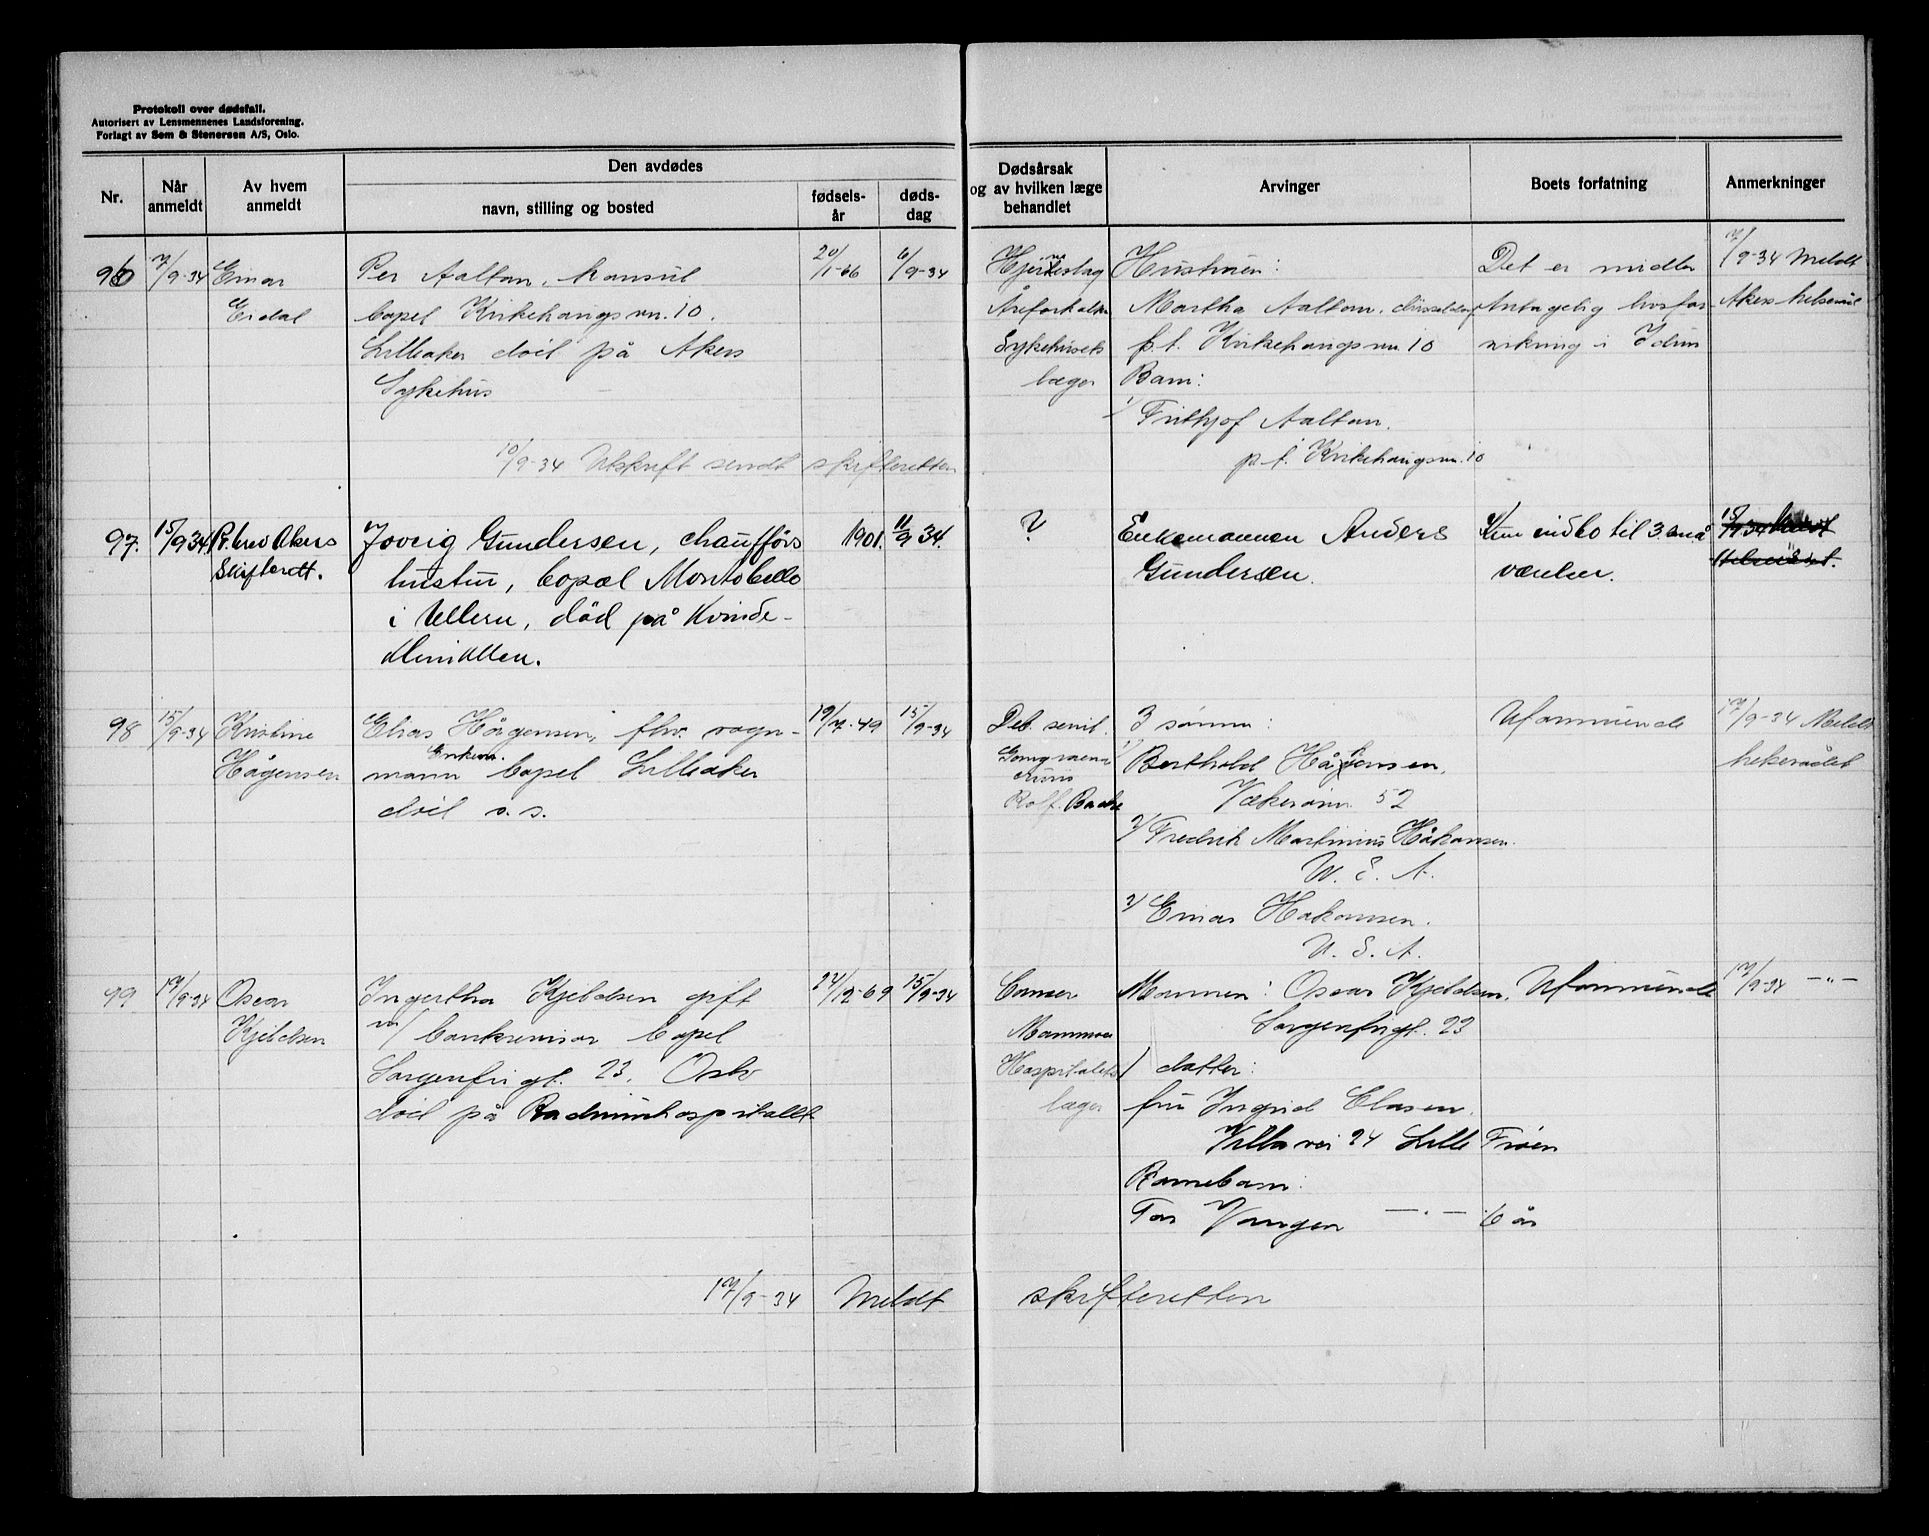 Protokoll over dødsfall.
Autorisert av Lensmennenes Landsforening.
Forlagt av Sem & Stenersen A/S, Oslo.
Nr.
Når anmeldt
Av hvem anmeldt
Den avdødes
navn, stilling og bosted
fødsels-år
døds-dag
Dødsårsak og av hvilken læge behandlet
Arvinger
Boets forfatning
Anmerkninger
96
7/9-34
Einar
Erdal
Per Aaltan, konsul
bopel Kirkehaugsvn. 10.
Lilleaker död på Akers
Sykehus
20/1-66
6/9-34
Hjerneslag
Åreforkalkn
Sykehusets
læger
Hustruen:
Martha Aaltan,
p.t. Kirkehaugsvn. 10
Barn:
1/ Frithjof Aaltan.
p.t. Kirkehaugsvn. 10
Det er midler
Antagelig livsfor
sikring i Idun
7/9-34 Meldt
Akers helseråd
10/9-34 Utskrift sendt skifteretten
97.
15/9 34
Pr. brev Akers
Skifterett.
Jovcig Gundersen, chaufförs
hustru, bopæl Montebello
i Ullern, död på Kvinde-
klinikken.
1901.
11/9 34.
?
Enkemannen Anders
Gundersen.
Kun indbo til 3 små
værelser.
98
15/9-34
Kristine
Hågensen
Elias Hågensen, fhv. vogn-
mann Enkem. bopel Lilleaker
död s. s.
19/7-49
15/9-34
Deb. senil.
Rolf Bache
3 sønner:
1/ Berthold Hågensen,
Vækerövn. 52
2/ Fredrik Martinius Håkansen.
U. S. A.
3/ Einar Hakansen.
U. S. A.
Uformuende
17/9-34 Meldt
helserådet
99
17/9-34
Oscar
Kjeldsen
Ingertha Kjeldsen gift
m/ bankrevisor bopel
Sorgenfrigt. 23, Oslo
död på Radiumhospitalet
24/12-69
15/9-34
Cancer
Mammae
Hospitalets
læger
Mannen: Oscar Kjeldsen,
Sorgenfrigt. 23
1 datter:
fru Ingrid Clasen.
Villavei 24 Lille Frøen
Barnebarn:
Tor Vangen —„— 6 år
Uformuende
17/9-34 —„—
17/9-34 Meldt skifteretten